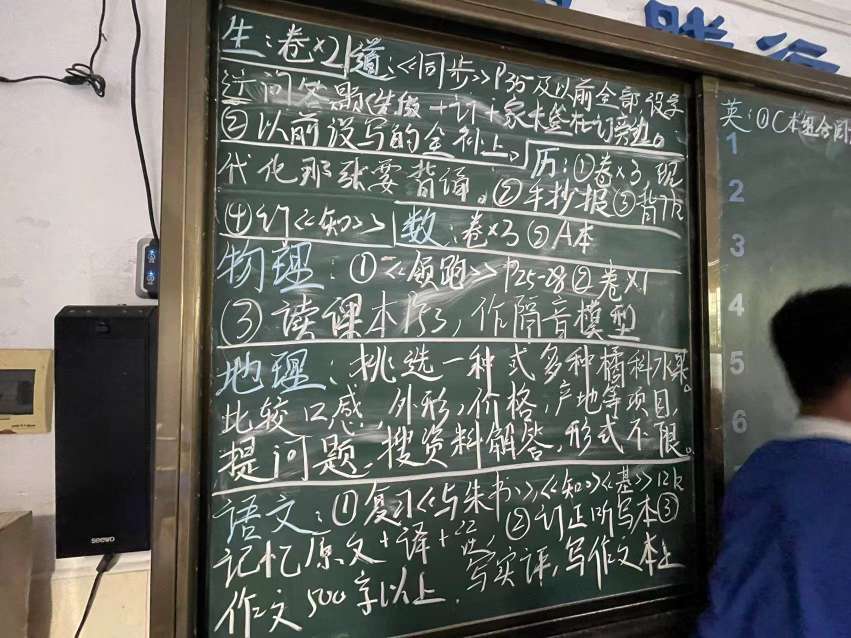 生:卷×2 道:《同步》P35及以前全部,没写
过问答题 + 订 + 家长签在订旁边。
②以前没写的全补上。 历:①卷×3 现
代化那张要背诵。②手抄报③背
④订《知》 数:卷×3 ②A本
物理:①《领跑》P25-28②卷×1
③读课本P33,作隔音模型
地理:挑选一种或多种橘科水果。
比较口感,外形,价格,产地等项目,
提问题,搜资料解答,形式不限。
语文:①复习《与朱书》,《知》《基》12k
②订正听写本③
记忆原文+译+
作文500字以上,写实评,写作文本上
英:①C本组合阅
1
2
3
4
5
6
seewo